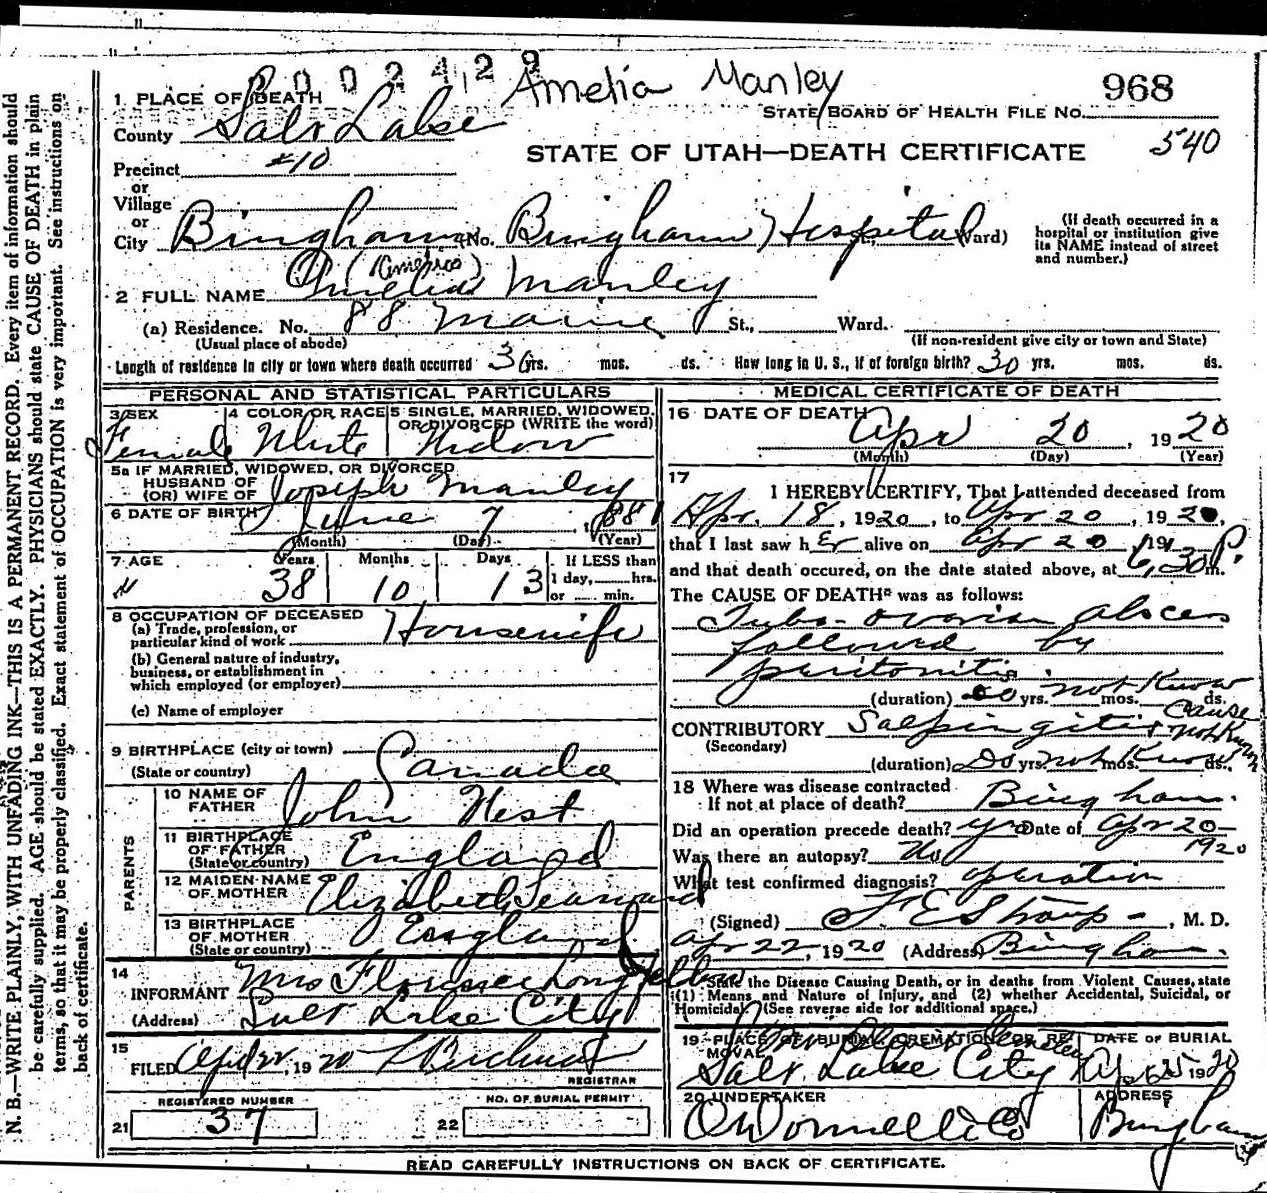 0 0 2 4 2 9
Amelia Manley
968
1 PLACE OF DEATH
STATE BOARD OF HEALTH FILE No.
County Salt Lake
540
STATE OF UTAH—DEATH CERTIFICATE
Precinct #10
or
Village
or
City Bingham No. Bingham Hospital St., Ward)
(If death occurred in a hospital or institution give its NAME instead of street and number.)
2 FULL NAME Amelia Manley
(a) Residence. No. 88 Maine St., Ward.
(Usual place of abode)
(If non-resident give city or town and State)
Length of residence in city or town where death occurred yrs. mos. ds. How long in U. S., if of foreign birth? 30 yrs. mos. ds.
PERSONAL AND STATISTICAL PARTICULARS
3 SEX
4 COLOR OR RACE
5 SINGLE, MARRIED, WIDOWED, OR DIVORCED (WRITE the word)
Female White Widow
5a IF MARRIED, WIDOWED, OR DIVORCED
HUSBAND OF
(OR) WIFE OF Joseph Manley
6 DATE OF BIRTH June 7, 1881
(Month) (Day) (Year)
7 AGE Years Months Days If LESS than
38 10 13 1 day, hrs.
or min.
8 OCCUPATION OF DECEASED
(a) Trade, profession, or
particular kind of work Housewife
(b) General nature of industry,
business, or establishment in
which employed (or employer)
(c) Name of employer
9 BIRTHPLACE (city or town)
(State or country) Canada
PARENTS
10 NAME OF
FATHER John West
11 BIRTHPLACE
OF FATHER England
(State or country)
12 MAIDEN NAME
OF MOTHER Elizabeth Seaward
13 BIRTHPLACE
OF MOTHER England
(State or country)
14
INFORMANT Mrs Florence Longfellow
(Address) Salt Lake City
15
FILED Apr 22, 1920
REGISTRAR
REGISTERED NUMBER
21 37
NO. OF BURIAL PERMIT
22
MEDICAL CERTIFICATE OF DEATH
16 DATE OF DEATH Apr 20, 1920
(Month) (Day) (Year)
17
I HEREBY CERTIFY, That I attended deceased from
Apr. 18, 1920, to Apr 20, 1920,
that I last saw her alive on Apr 20, 19
and that death occured, on the date stated above, at 6,30 P. m.
The CAUSE OF DEATH* was as follows:
Tubo-ovarian absces
followed by
peritonitis
(duration) Do yrs. not Know mos. ds.
CONTRIBUTORY Salpingitis cause
(Secondary) not Known
(duration) Do yrs. not Know mos. ds.
18 Where was disease contracted
If not at place of death? Bingham.
Did an operation precede death? yes Date of Apr 20—
1920
Was there an autopsy? No
What test confirmed diagnosis? operation
(Signed) F. E. Straup, M. D.
Apr 22, 1920 (Address) Bingham.
*State the Disease Causing Death, or in deaths from Violent Causes, state
(1) Means and Nature of Injury, and (2) whether Accidental, Suicidal, or
Homicidal. (See reverse side for additional space.)
19 PLACE OF BURIAL, CREMATION OR REMOVAL
DATE OF BURIAL
Salt Lake City Apr 25 1920
20 UNDERTAKER
ADDRESS
O'Donnell & Co Bingham
READ CAREFULLY INSTRUCTIONS ON BACK OF CERTIFICATE.
N. B.—WRITE PLAINLY, WITH UNFADING INK—THIS IS A PERMANENT RECORD. Every item of information should
be carefully supplied. AGE should be stated EXACTLY. PHYSICIANS should state CAUSE OF DEATH in plain
terms, so that it may be properly classified. Exact statement of OCCUPATION is very important. See instructions on
back of certificate.